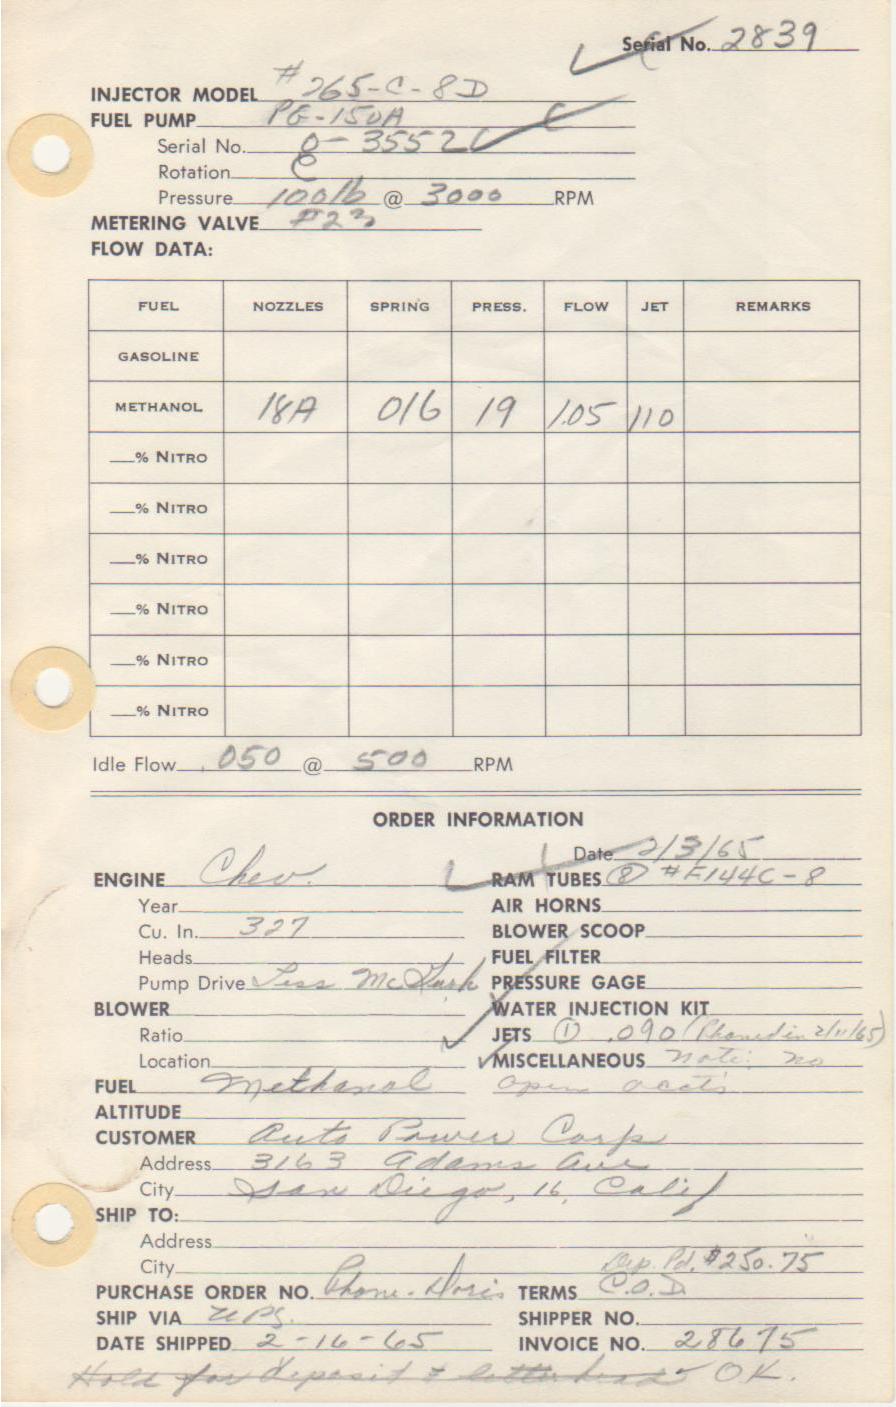 Serial No. 2839
INJECTOR MODEL #265-C-8D
FUEL PUMP PG-150A
Serial No. 0-3552
Rotation C
Pressure 100lb @ 3000 RPM
METERING VALVE #23
FLOW DATA:
FUEL NOZZLES SPRING PRESS. FLOW JET REMARKS
GASOLINE
METHANOL 18A 016 19 1.05 110
% NITRO
% NITRO
% NITRO
% NITRO
% NITRO
% NITRO
Idle Flow .050 @ 500 RPM
ORDER INFORMATION
Date 2/3/65
ENGINE Chev. RAM TUBES (8) #F144C-8
Year AIR HORNS
Cu. In. 327 BLOWER SCOOP
Heads FUEL FILTER
Pump Drive PRESSURE GAGE
BLOWER WATER INJECTION KIT
Ratio JETS (1) .090 (Phoned in 2/11/65)
Location MISCELLANEOUS Note: no
FUEL Methanol open acct.
ALTITUDE
CUSTOMER Auto Power Corp
Address 3163 Adams Ave
City San Diego, 16, Calif
SHIP TO:
Address
City Dep. Pd. $250.75
PURCHASE ORDER NO. Phone-Doris TERMS C.O.D
SHIP VIA UPS. SHIPPER NO.
DATE SHIPPED 2-16-65 INVOICE NO. 28675
Hold for deposit & letterhead OK.